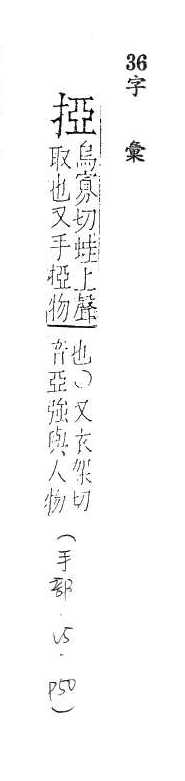 36字彙
掗
烏寡切蛙上聲
取也又手掗物
也○又衣架切
音亞強與人物
(手部.V5.P50)